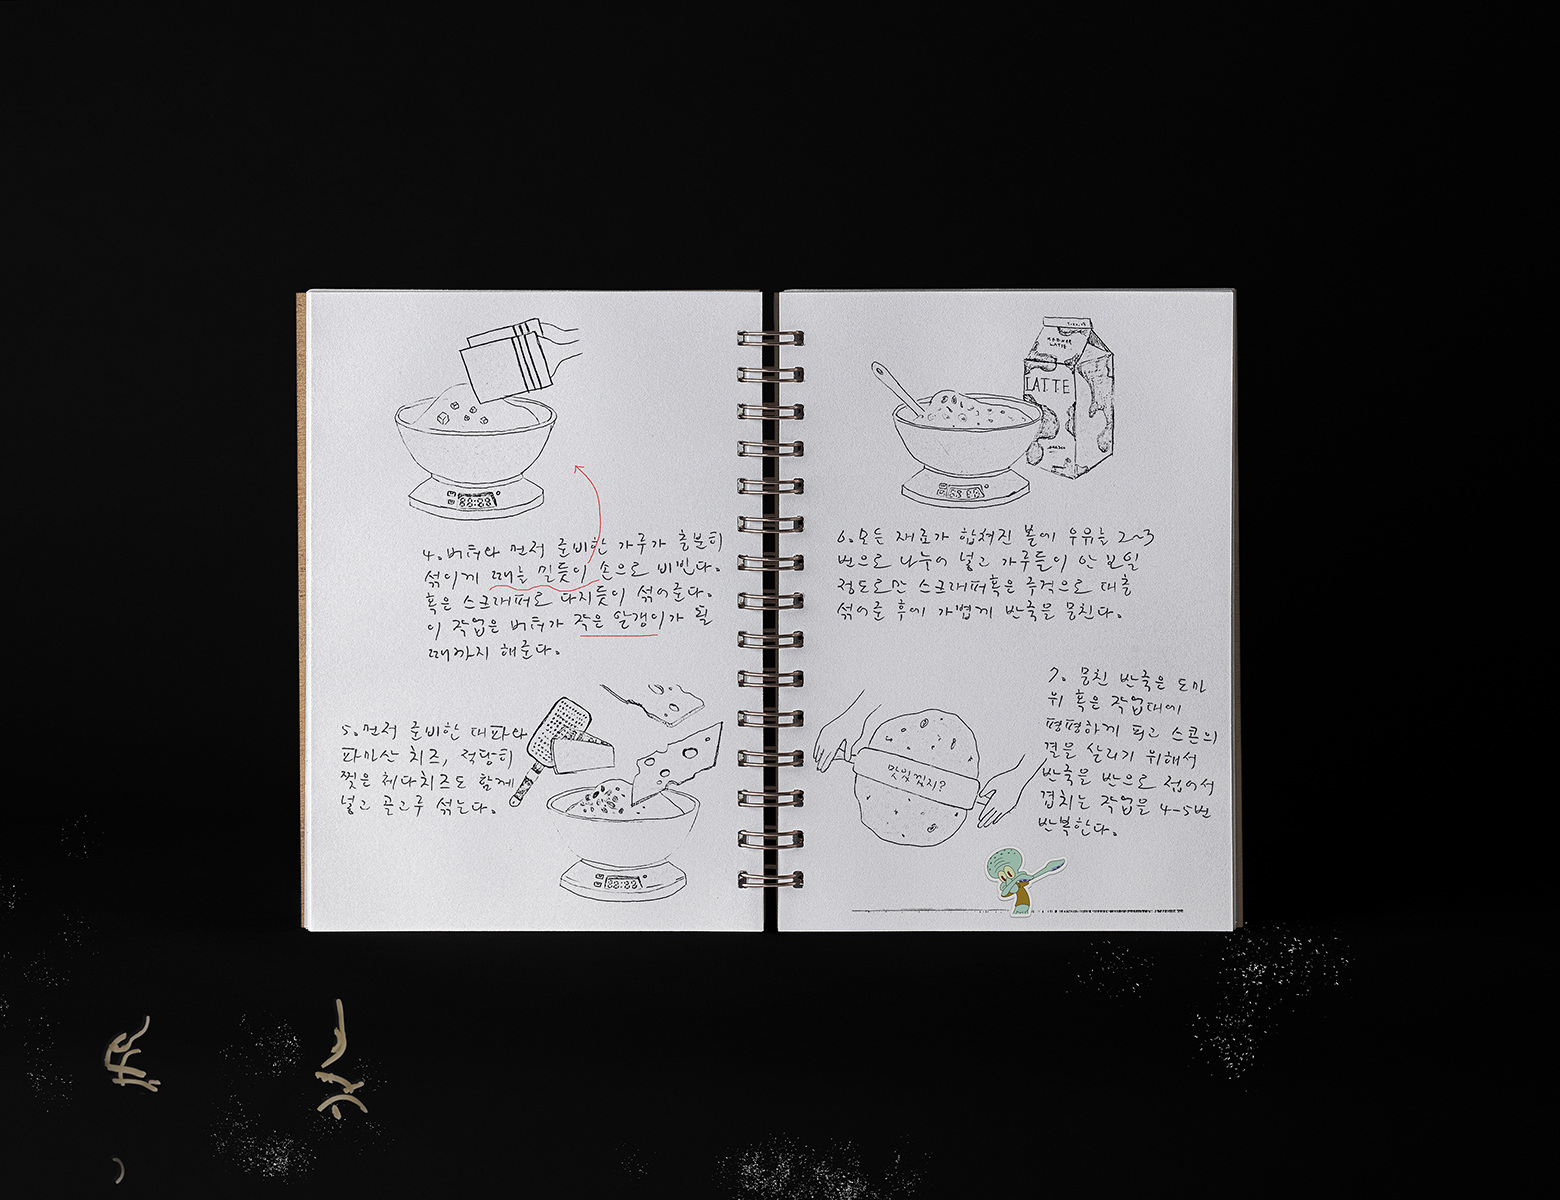 4. 버터와 먼저 준비한 가루가 충분히
섞이게 때늘 밀듯이 손으로 비빈다.
혹은 스크래퍼로 다지듯이 섞어준다.
이 작업은 버터가 작은 알갱이가 될
때까지 해준다.
5. 먼저 준비한 대파와
파마산 치즈, 적당히
찢은 체다치즈도 함께
넣고 골고루 섞는다.
LATTE
LATTE
6. 모든 재료가 합쳐진 볼에 우유를 2~3
번으로 나누어 넣고 가루들이 안 보일
정도로만 스크래퍼 혹은 주걱으로 대충
섞어준 후에 가볍게 반죽을 뭉친다.
7. 뭉친 반죽은 도마
위 혹은 작업대에
평평하게 펴고 스콘의
결을 살리기 위해서
반죽을 반으로 접어서
겹치는 작업을 4-5번
반복한다.
맛있겠지?